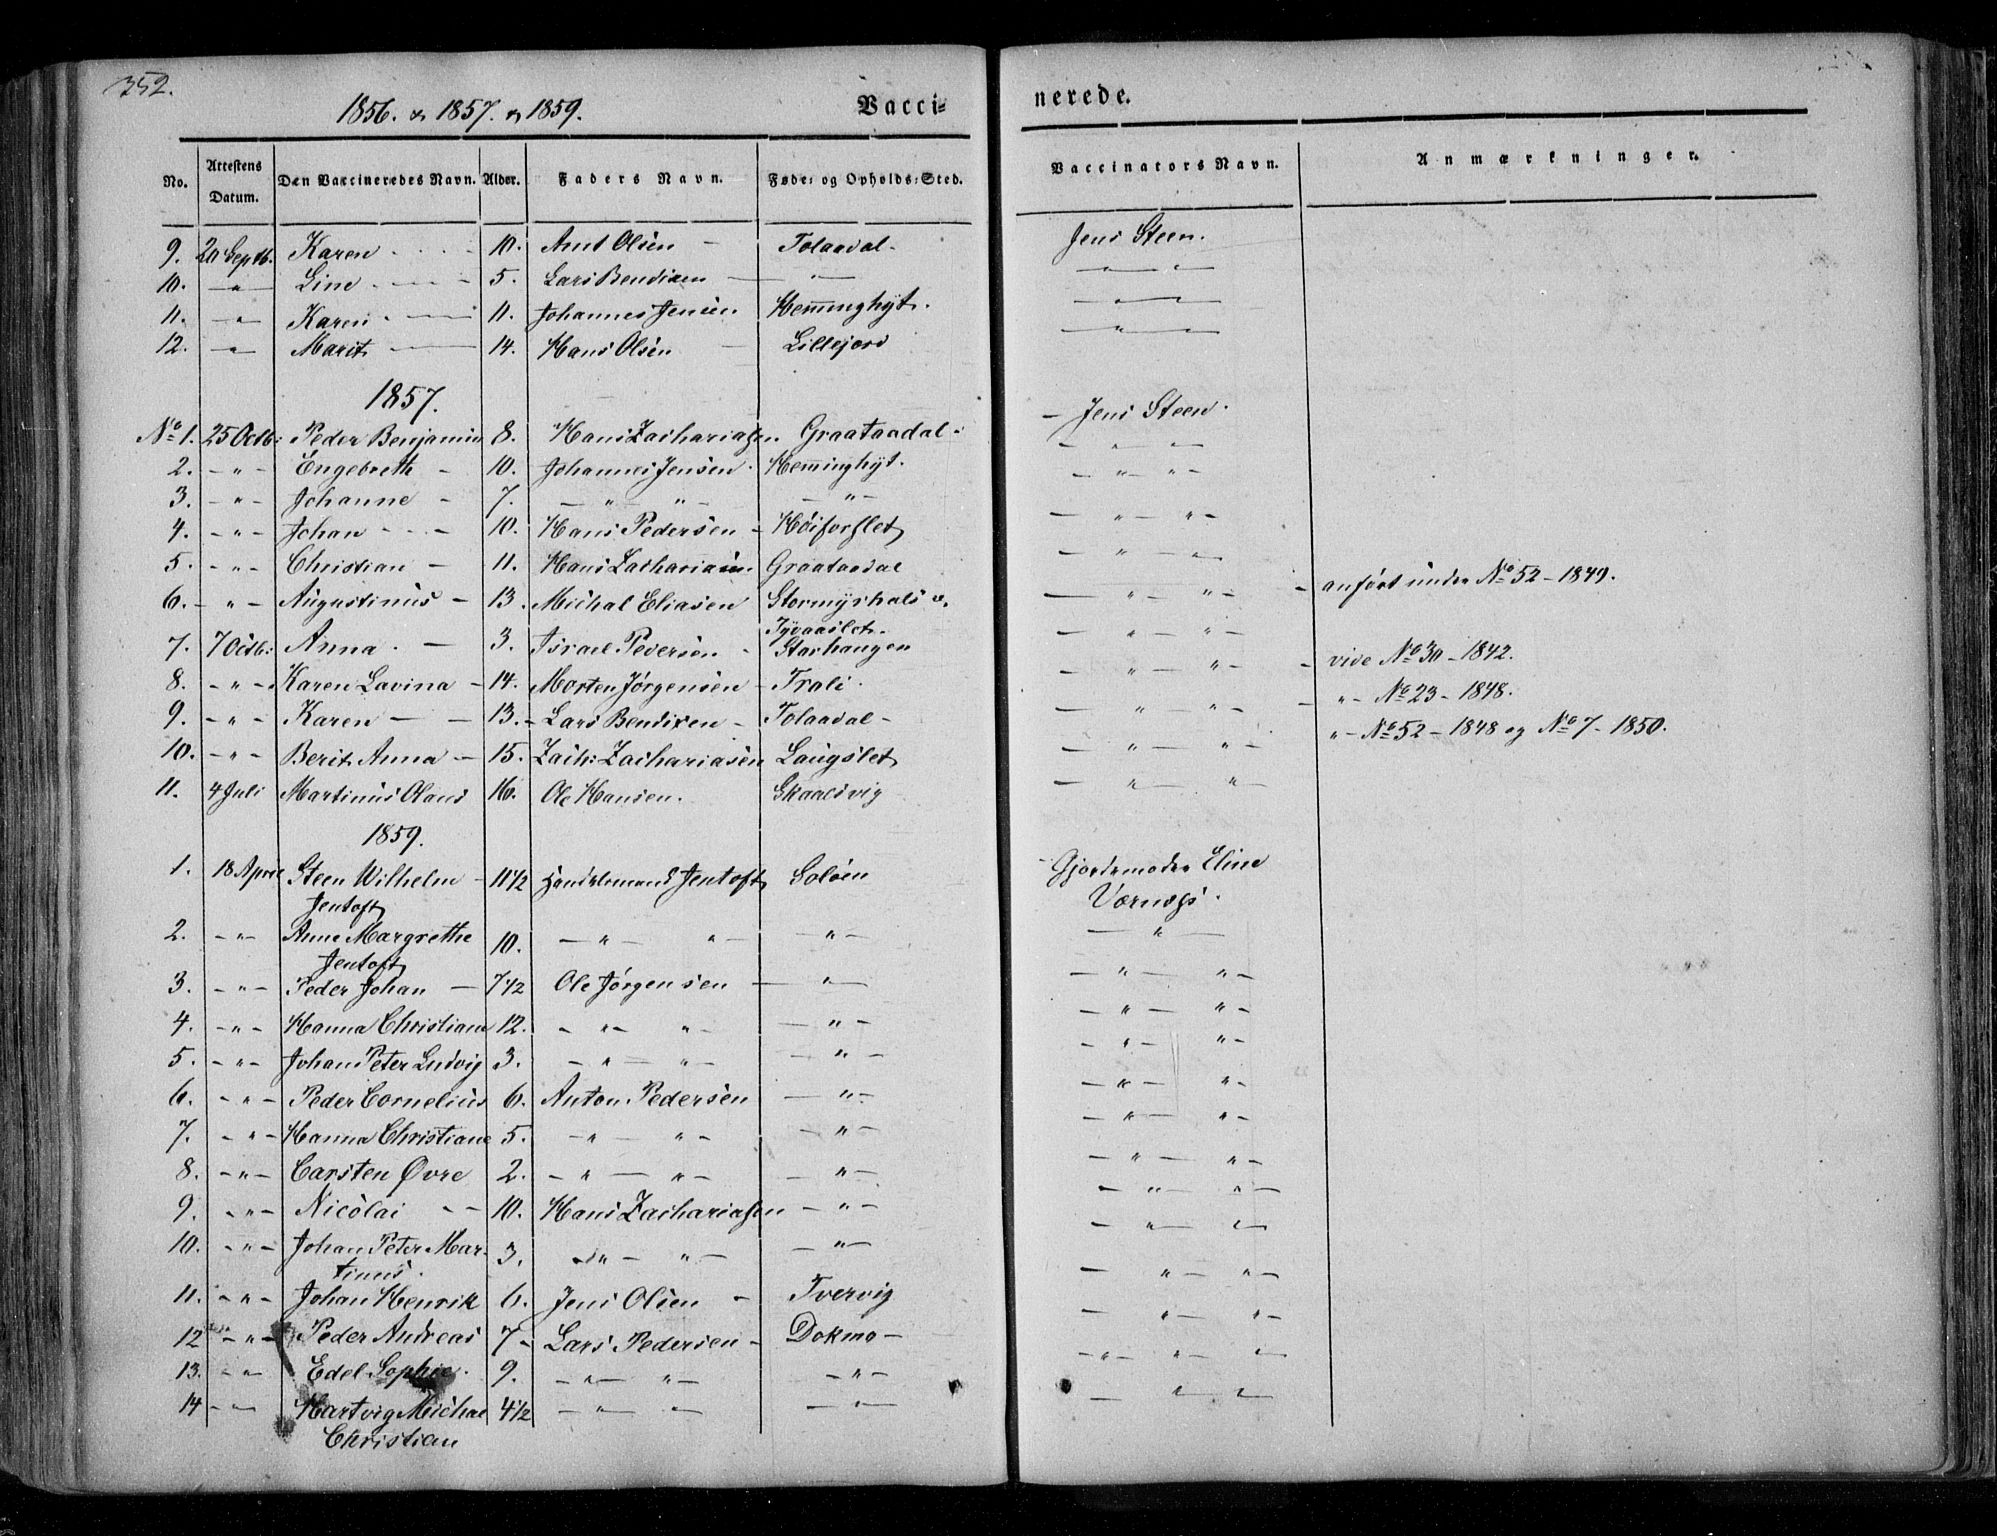 352.
1856. & 1857. & 1859.
Vacci-
nerede.
No.
Attestens Datum.
Den Vaccineredes Navn.
Alder.
Faders Navn.
Føde- og Opholds-Sted.
Vaccinators Navn.
Anmærkninger.
9. 20 Septb. Karen 10. Arnt Olsen - Tolaadal - Jens Steen.
10. — " — Line 5. Lars Bendixen — " — — " — " —
11. — " — Karen 11. Johannes Jensen Hemminghyt. — " — " —
12. — " — Marit 14. Hans Olsen Lillejord — " — " —
1857.
No 1. 25 Octb: Peder Benjamin 8. Hans Zachariasen Graataadal - — Jens Steen.
2. - " - Engebreth - 10. Johannes Jensen. Hemminghyt. - " "
3. - " - Johanne - 7. — " " - — " - — " - " -
4. - " - Johan - 10. Hans Pedersen - Høiforslet — " — " -
5. - " - Christian - 11. Hans Zachariasen. Graataadal — " — "
6. - " - Augustinus - 13. Michal Eliasen Stormyrhals v. — " — " - - anført under No 52 - 1849.
Tyvaaslet.
7. 7 Octb: Anna. — 3. Israel Pedersen - Starhaugen — " — " -
8. - " - Karen Lavina - 14. Morten Jørgensen - Trali. — " " - - vide No 30 - 1842.
9. - " - Karen — 13. - Lars Bendixen - Tolaadal - — " — " - - " - No 23 - 1848.
10. - " - Berit Anna - 15. Zach: Zachariasen Laugslet — " — " - " - No 52 - 1848 og No 7 - 1850.
11. 4 Juli Martinus Olaus 16. Ole Hansen. Skaalsvig — " "
1859.
1. 18 April Steen Wilhelm - 11 1/2 Handelsmand Jentoft Soløen Gjordemoder Eline
Jentoft Værnægs.
2. - " - Anne Margrethe 10. — " - " - — " - — " —
Jentoft
3. - " - Peder Johan — 7 1/2 Ole Jørgensen — " — — " — " -
4. - " - Hanna Christiane 12. - " - " - — " - — " — " -
5. - " - Johan Peter Ludvig 3. - " — " - — " - - " — " -
6. - " - Peder Cornelius 6. Anton Pedersen — " - - " - " -
7. - " - Hanna Christiane 5. - " — " - - " - - " - " -
8. - " - Carsten Øvre 2. - " — " - - " - - " — " -
9. - " - Nicolai - - 10. Hans Zachariasen - " - - " — " -
10. - " - Johan Peter Mar- 3. - " - " - — " - - " "
tinus.
11. - " - Johan Henrik 6. Jens Olsen - Tvervig - " - " -
12 - " - Peder Andreas 7 - Lars Pedersen - Dokmo - - " - " -
13. - " - Edel Sophie. 9. - " - " - - " - - " - " "
14 - " - Hartvig Michal 4 1/2 - " - " - - " - — " "
Christian